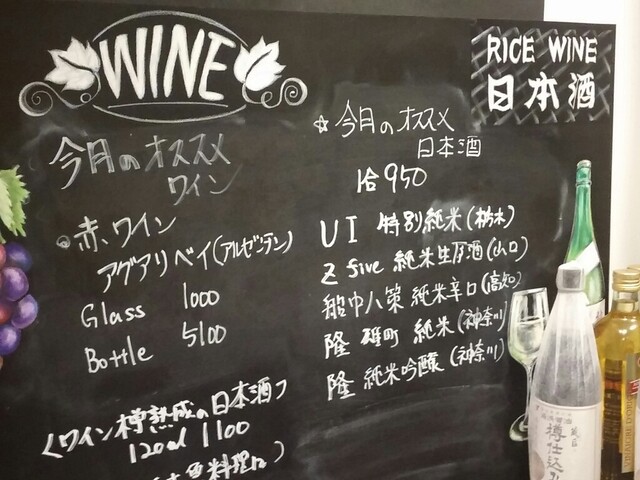 WINE
今月のオススメ
ワイン
赤ワイン
アグアリベイ(アルゼンテン)
Glass 1000
Bottle 5100
<ワイン樽熟成の日本酒>
120ml 1100
RICE WINE
日本酒
☆今月のオススメ
日本酒
1合950
UI 特別純米(栃木)
Z five 純米生原酒(山口)
船中八策 純米辛口(高知)
隆 雄町 純米(神奈川)
隆 純米吟醸(神奈川)
樽仕込み